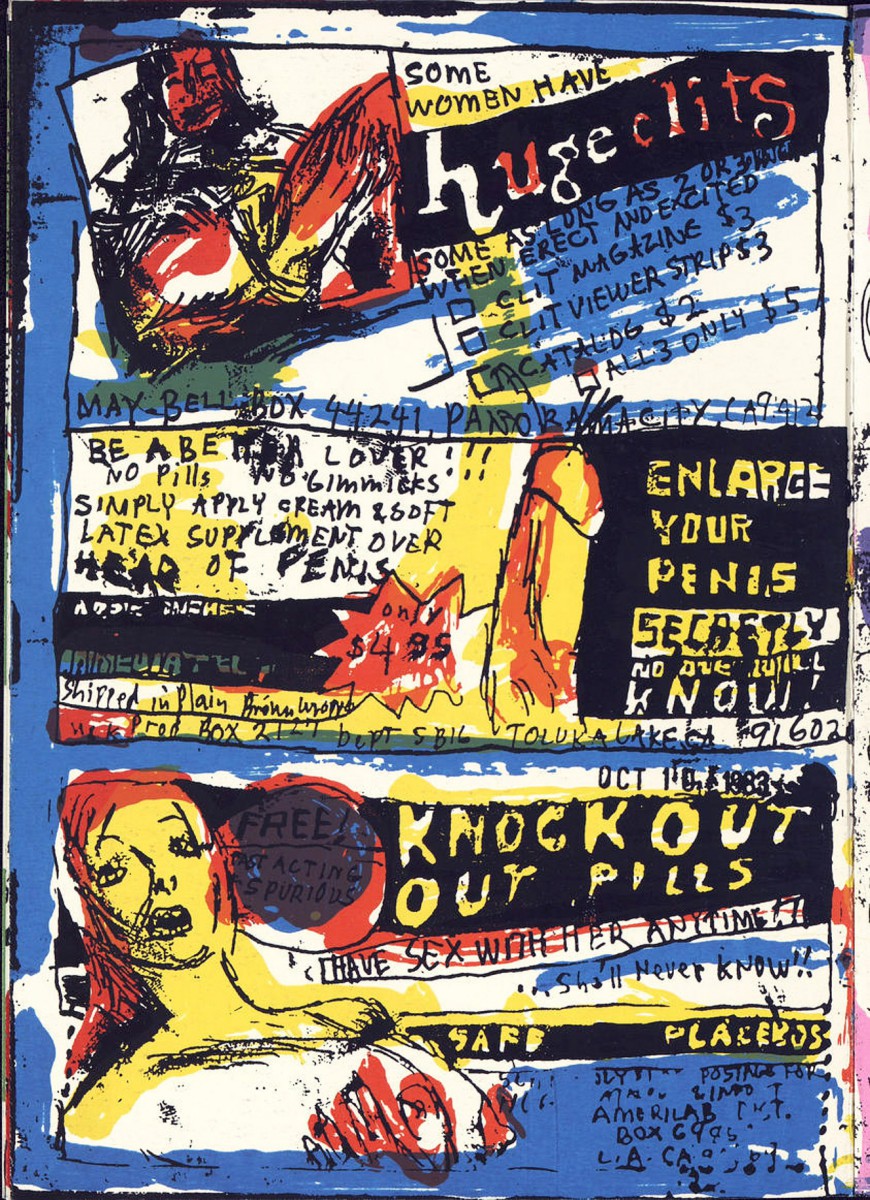 SOME
WOMEN HAVE
huge clits
SOME AS LONG AS 2 OR 3
WHEN ERECT AND EXCITED
CLIT MAGAZINE $3
CLIT VIEWER STRIP $3
CATALOG $2
ALL 3 ONLY $5
MAY-BELL BOX 44241, PANORAMA CITY, CA
BE A BETTER LOVER!!!
NO Pills NO Gimmicks
SIMPLY APPLY CREAM & SOFT
LATEX SUPPLEMENT OVER
HEAD OF PENIS
ADDS INCHES
IMMEDIATELY
only
$4 95
Shipped in Plain Brown Wrapper
Prod BOX 2127 DEPT SB16 TOLUKA LAKE, CA 91602
ENLARGE
YOUR
PENIS
SECRETLY
NO ONE WILL
KNOW!
OCT 10 1983
FREE!
FAST ACTING
SPURIOUS
KNOCKOUT
OUT PILLS
HAVE SEX WITH HER ANYTIME!!
...She'll Never KNOW!!
SAFE PLACEBOS
POSTAGE FOR
AMERILAB INT.
BOX
L.A. CA.